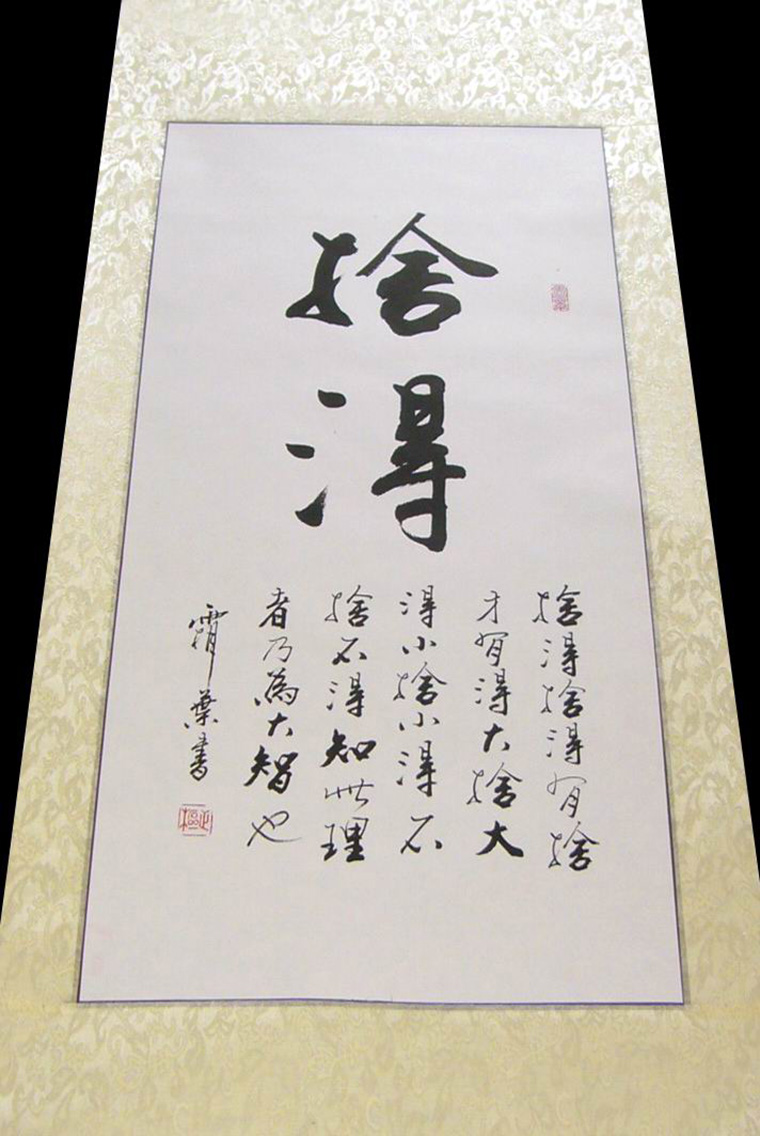 捨得
捨得捨得有捨
才有得大捨大
得小捨小得不
捨不得知此理
者乃為大智也
霜葉書